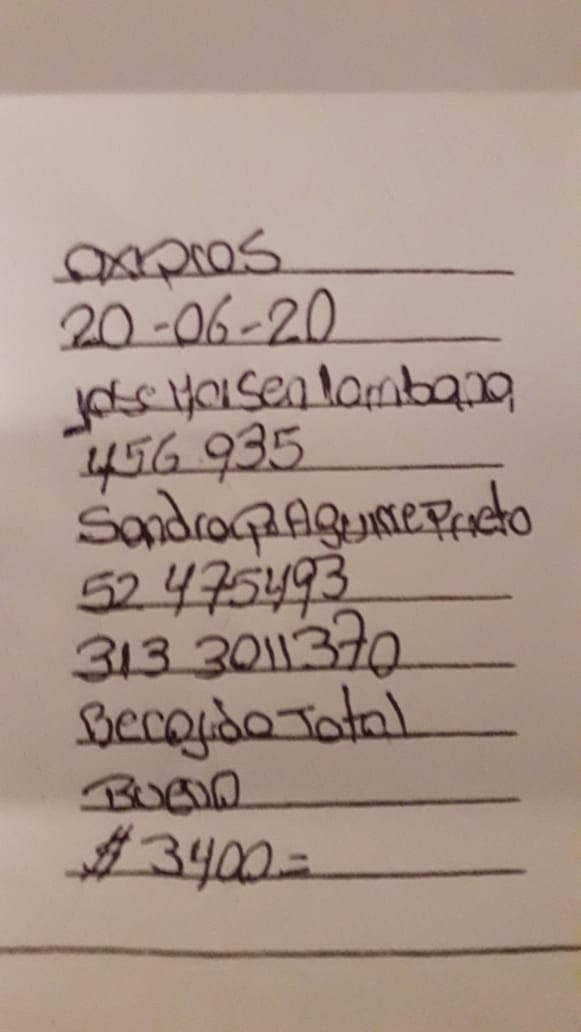 oxxpros
20-06-20
jose Yeisen lombana
456 935
Sandra P Aguirre Prieto
52 475493
313 3011370
Becogido Total
Bueno
$ 3400=